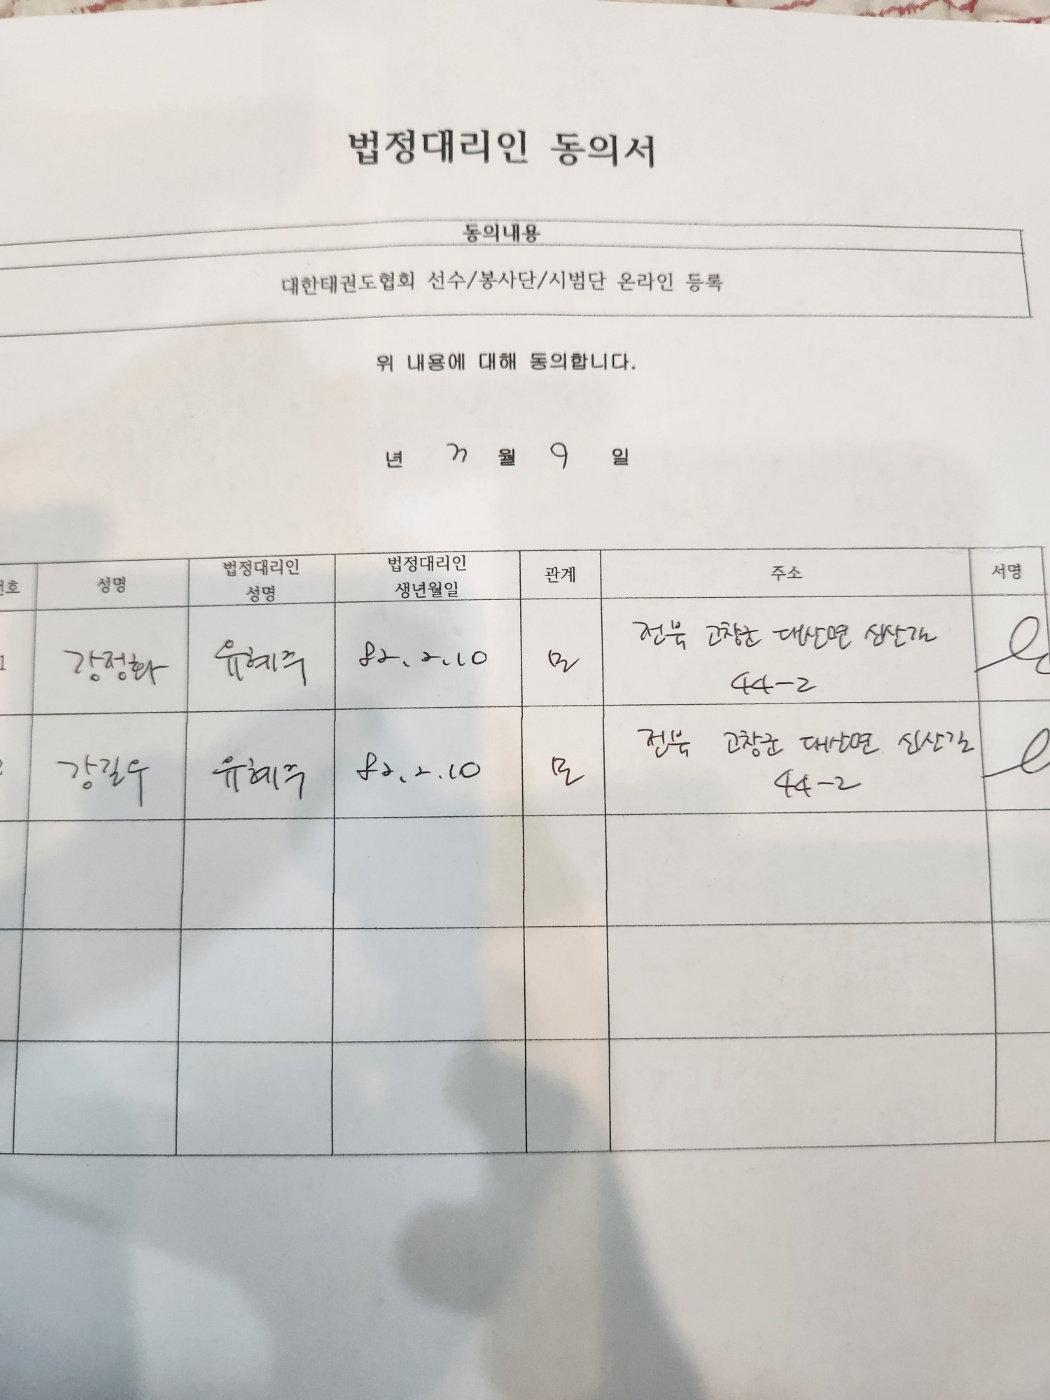 법정대리인 동의서
동의내용
대한태권도협회 선수/봉사단/시범단 온라인 등록
위 내용에 대해 동의합니다.
년 월 9 일
성명 법정대리인 성명 법정대리인 생년월일 관계 주소 서명
1 강정화 유혜주 82.2.10 모 전북 고창군 대산면 신산길
44-2
강길우 유혜주 82.2.10 모 전북 고창군 대산면 신산길
44-2